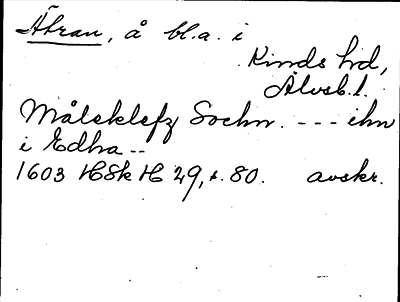 Ätran, å bl.a. i
Kinds hd,
Älvsb.l.
Målsklefz Sochn. --- ehn
i Edhra --
1603 HSk H 29, s. 80. avskr.